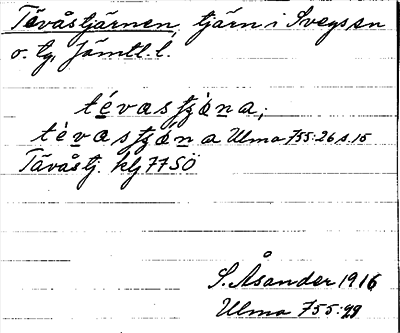 Tévåstjärnen, tjärn i Svegs sn
o. tg, Jämtl. l.
tévastjána;
tévastjána Ulma 755:26 s. 15
Tåvåstj. klj 77 SÖ
S. Åsander 1916
Ulma 755:49